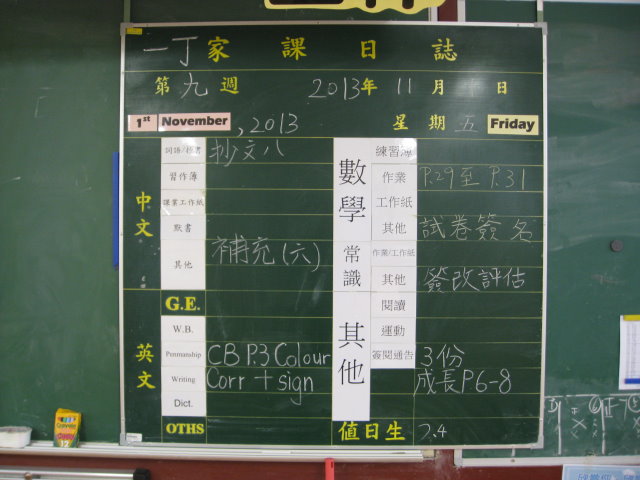 一丁家課日誌
第九週 2013年 11月 日
1st November, 2013 星期五 Friday
中文
抄文八
習作簿
課業工作紙
默書
其他 補充(六)
G.E.
英文
W.B.
Penmanship CB P.3 Colour
Writing Corr + sign
Dict.
OTHS
數學
練習簿
作業 P.29至 P.31
工作紙
其他 試卷簽名
常識
作業/工作紙
其他 簽改評估
其他
閱讀
運動
簽閱通告 3份
成長P6-8
值日生 2,4